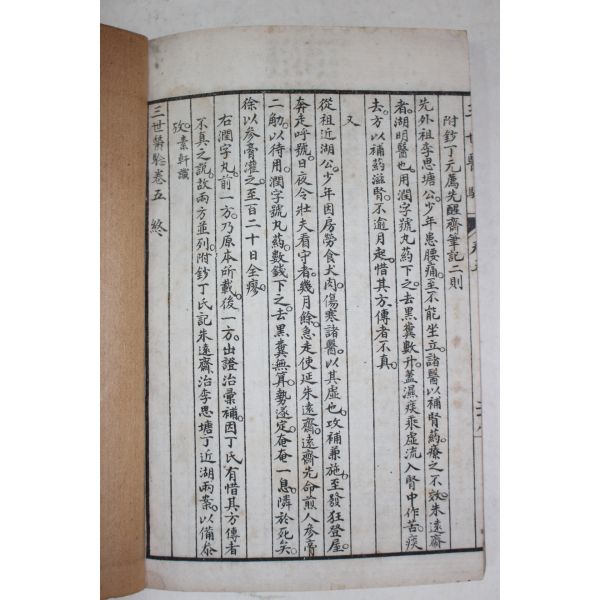 附鈔丁元薦先醒齋筆記二則
先外祖李思塘公少年患腰痛至不能坐立諸醫以補腎藥療之不效朱遠齋
者湖明醫也用潤字號丸藥下之去黑糞數升蓋濕痰乘虛流入腎中作苦痰
去方以補藥滋腎不逾月起惜其方傳者不真
又
從祖近湖公少年因房勞食犬肉傷寒諸醫以其虛也攻補兼施至發狂登屋
奔走呼號日夜令壯夫看守者幾月餘急走使延朱遠齋遠齋先命煎人參膏
二觔以待用潤字號丸藥數錢下之去黑糞無算勢遂定奄奄一息隣於死矣
徐以參膏灌之至百二十日全瘳
右潤字丸前一方乃原本所載後一方出證治彙補因丁氏有惜其方傳者
不真之說故兩方並列附鈔丁氏記朱遠齋治李思塘丁近湖兩案以備叅
攷素軒識
三世醫驗卷五 終